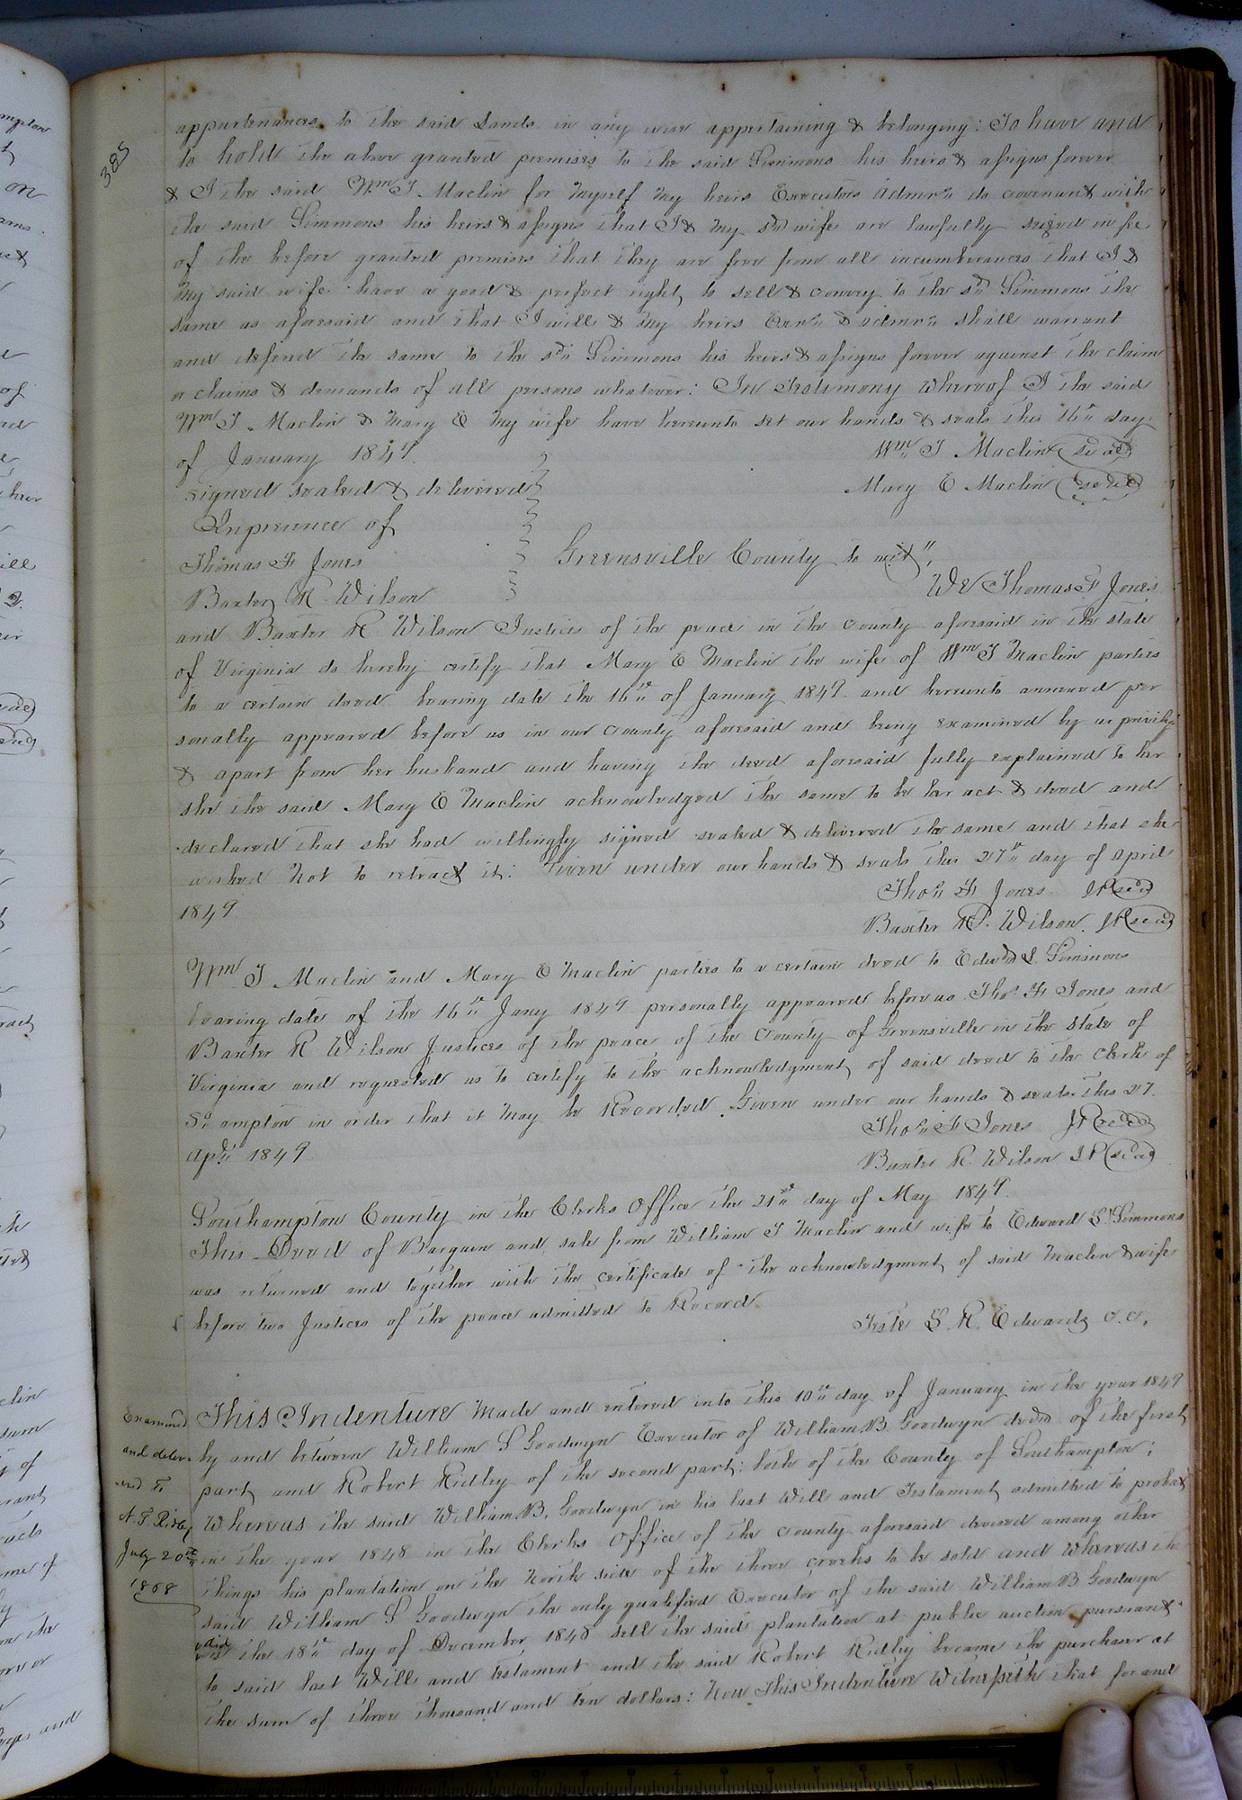 385
appurtenances to the said Lands in any wise appertaining & belonging: To have and
to hold the above granted premises to the said Simmons his heirs & assigns forever
& I the said Wm T Maclin for myself my heirs Executors Admrs do covenant with
the said Simmons his heirs & assigns that I & my sd wife are lawfully seized in fee
of the before granted premises that they are free from all incumberances that I &
my said wife have a good & perfect right to sell & convey to the sd Simmons the
same as aforesaid and that I will & my heirs Exrs & admrs shall warrant
and defend the same to the sd Simmons his heirs & assigns forever against the claim
or claims & demands of all persons whatever: In Testimony whereof I the said
Wm T Maclin & Mary E my wife have hereunto set our hands & seals this 16th day
of January 1849
Wm T Maclin (seal)
signed sealed & delivered
Mary E Maclin (seal)
In presence of
Thomas F Jones
Baxter R Wilson
Greensville County to wit,
We Thomas F Jones
and Baxter R Wilson Justices of the peace in the county aforesaid in the state
of Virginia do hereby certify that Mary E Maclin the wife of Wm T Maclin parties
to a certain deed bearing date the 16th of January 1849 and hereunto annexed per
sonally appeared before us in our county aforesaid and being examined by us privily
& apart from her husband and having the deed aforesaid fully explained to her
she the said Mary E Maclin acknowledged the same to be her act & deed and
declared that she had willingly signed sealed & delivered the same and that she
wished not to retract it: Given under our hands & seals this 27th day of April
1849
Thos F Jones JP (seal)
Baxter R. Wilson JP (seal)
Wm T Maclin and Mary E Maclin parties to a certain deed to Edwd S Simmons
bearing date of the 16th Jany 1849 personally appeared before us Thos F Jones and
Baxter R Wilson Justices of the peace of the County of Greensville in the state of
Virginia and requested us to certify to the acknowledgment of said deed to the Clerk of
So ampton in order that it may be Recorded. Given under our hands & seals this 27
Apl 1849
Thos F Jones JP (seal)
Baxter R. Wilson JP (seal)
Southampton County in the Clerks Office the 21st day of May 1849.
This Deed of Bargain and sale from William T Maclin and wife to Edward S Simmons
was returned and together with the certificate of the acknowledgment of said Maclin & wife
before two Justices of the peace admitted to Record
Teste L. R. Edwards C.C.
Examined
and deliv-
ered to
July 20th
1858
This Indenture made and entered into this 10th day of January in the year 1849
by and between William S Goodwyn Executor of William B. Goodwyn decd of the first
part and Robert Ridley of the second part: both of the County of Southampton:
Whereas the said William B. Goodwyn in his last Will and Testament admitted to probat
in the year 1848 in the Clerks Office of the county aforesaid devised among other
things his plantation on the North side of the three creeks to be sold and whereas the
said William S Goodwyn the only qualified Executor of the said William B Goodwyn
did the 18th day of December 1848 sell the said plantation at public auction pursuant
to said last Will and testament and the said Robert Ridley became the purchaser at
the sum of three thousand and ten dollars: Now This Indenture Witnesseth that for and